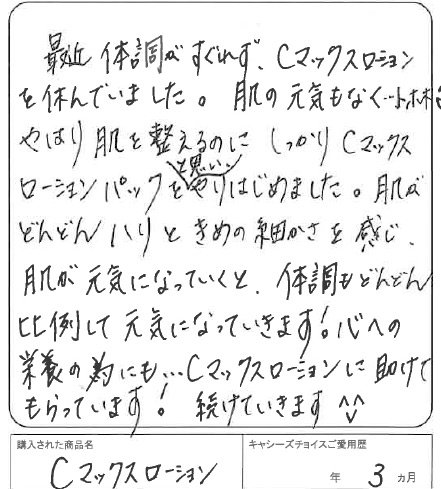 最近 体調がすぐれず、Cマックスローション
を休んでいました。肌の元気もなく…
やはり 肌を整えるのに しっかりCマックス
ローションパックをと思い、やりはじめました。肌が
どんどんハリときめの細かさを感じ、
肌が元気になっていくと、体調もどんどん
比例して元気になっていきます!心への
栄養の為にも…Cマックスローションに助けて
もらっています! 続けていきます^^
購入された商品名
キャシーズチョイスご愛用歴
Cマックスローション
年 3 ヵ月